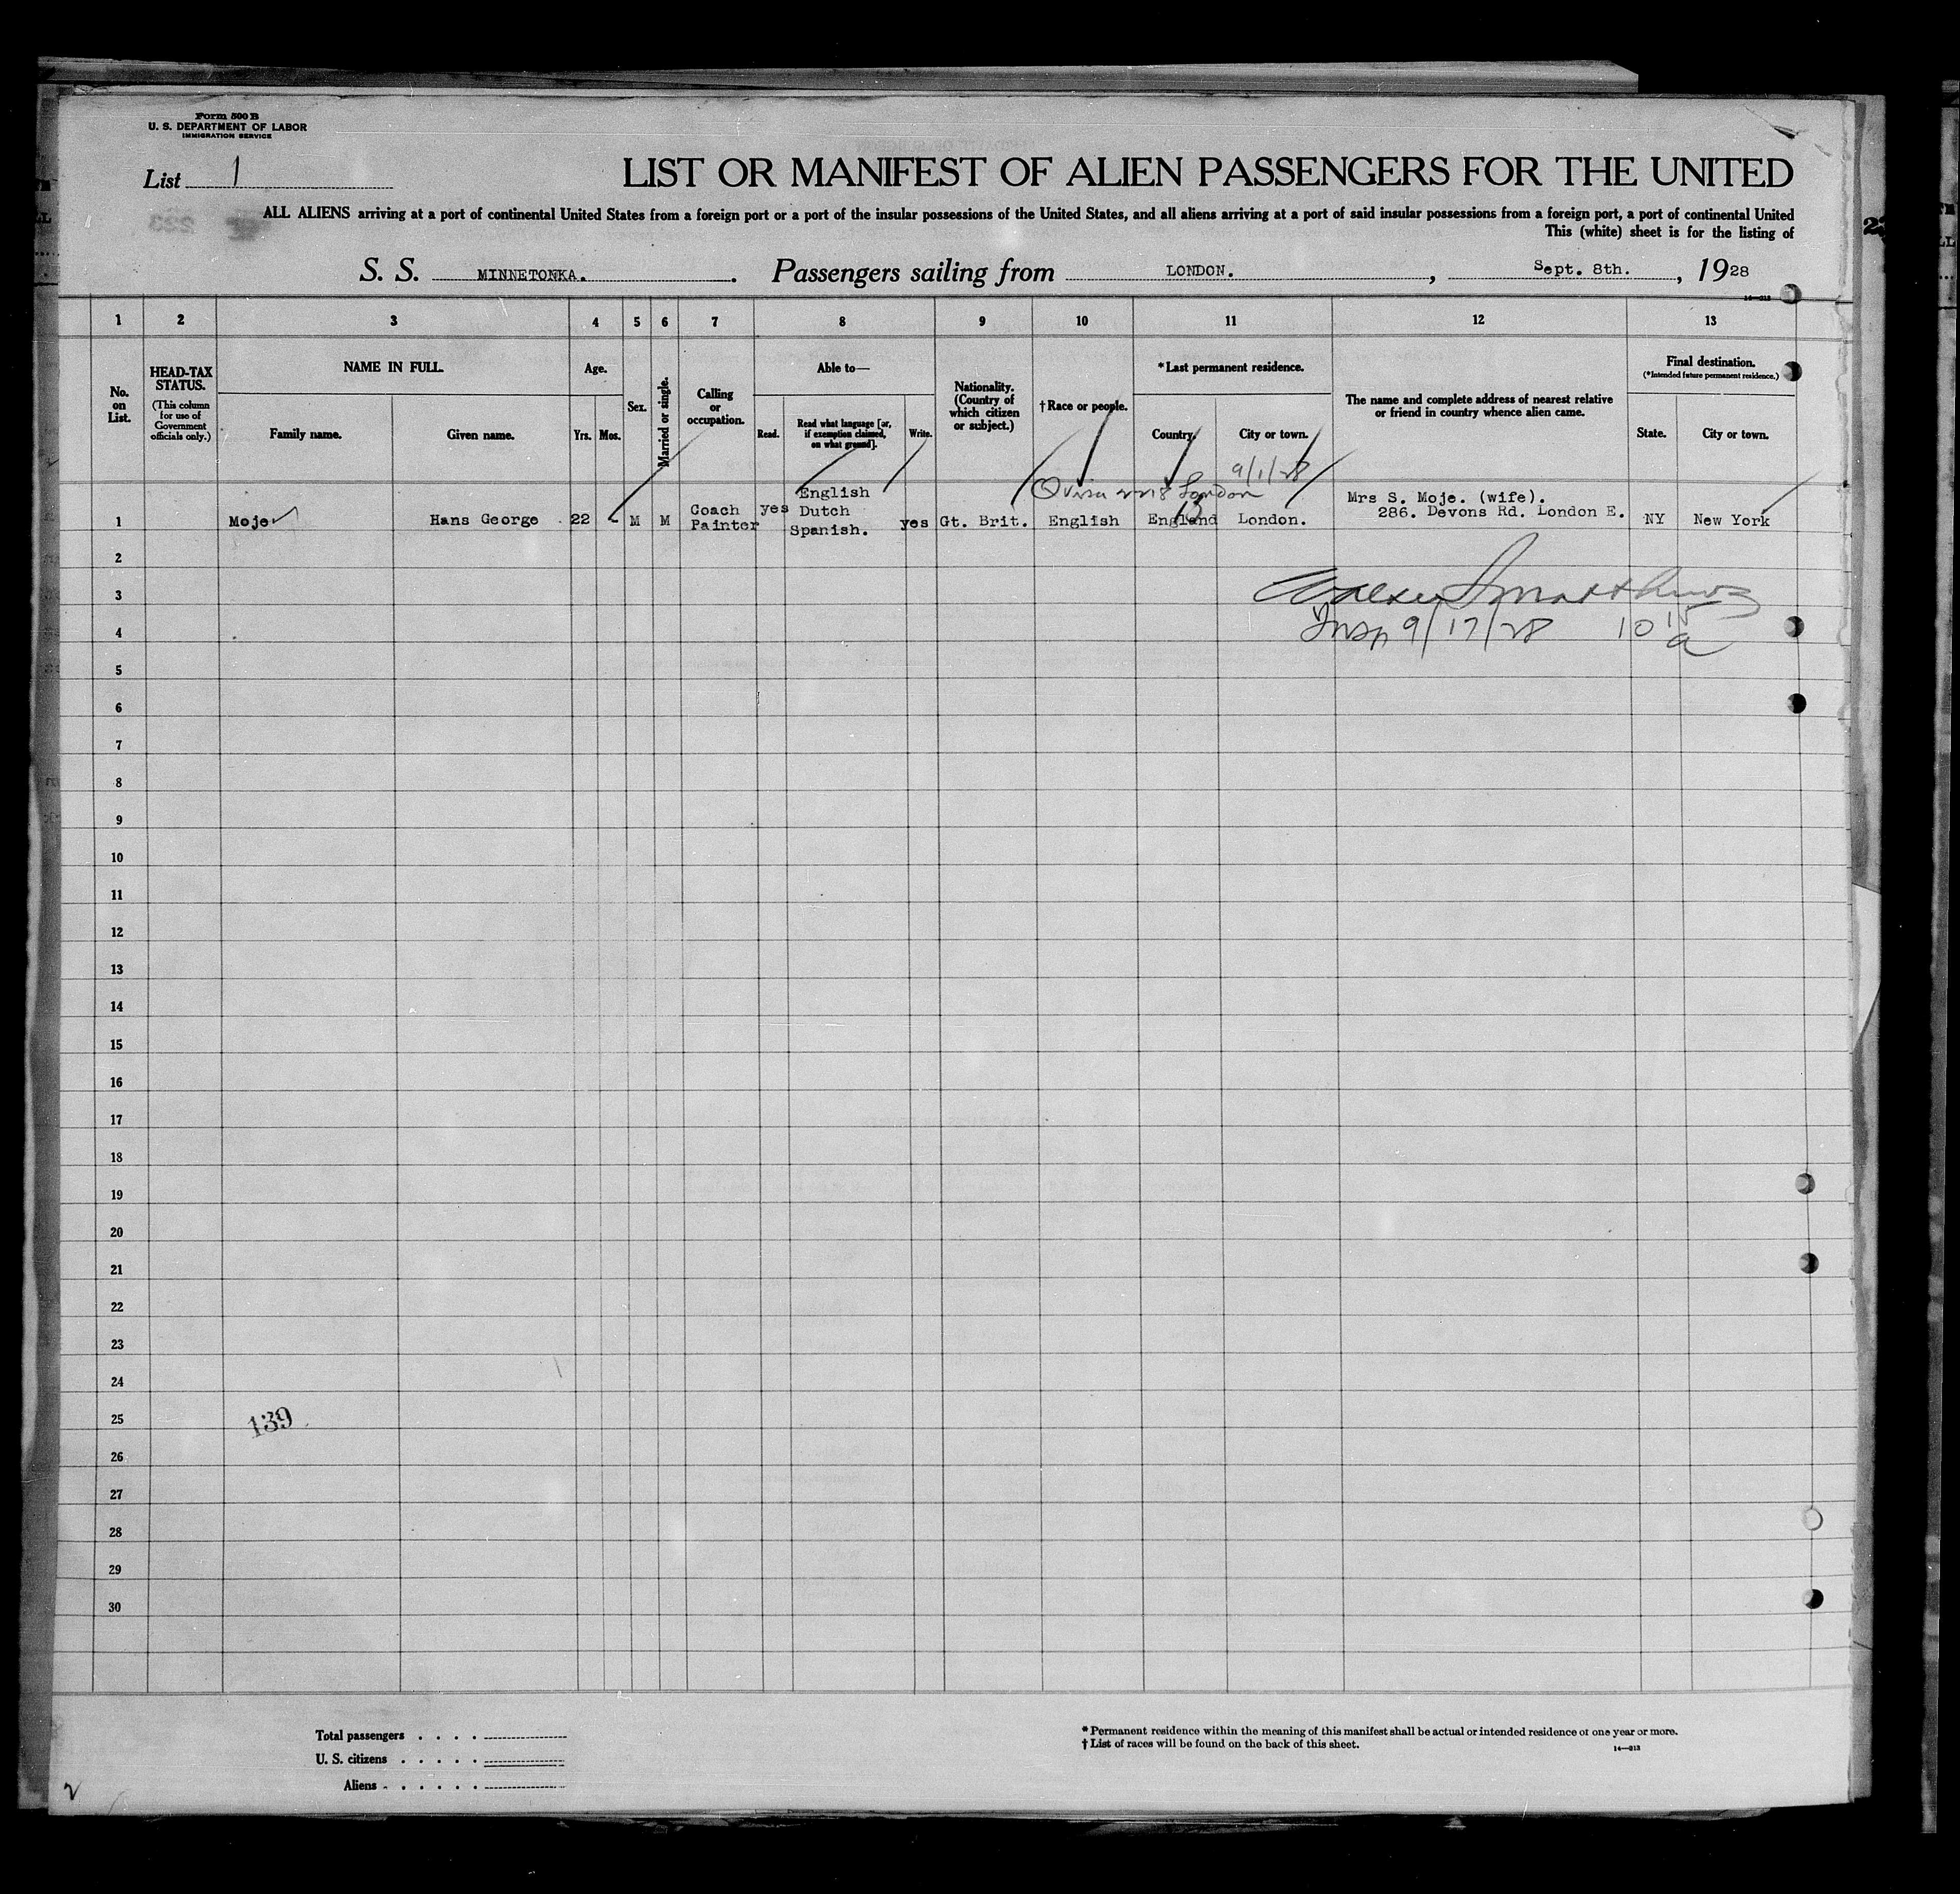 Form 500 B
U. S. DEPARTMENT OF LABOR
IMMIGRATION SERVICE
List 1
LIST OR MANIFEST OF ALIEN PASSENGERS FOR THE UNITED
ALL ALIENS arriving at a port of continental United States from a foreign port or a port of the insular possessions of the United States, and all aliens arriving at a port of said insular possessions from a foreign port, a port of continental United
This (white) sheet is for the listing of
S. S. MINNETONKA. Passengers sailing from LONDON. , Sept. 8th. , 1928
14—213
1 2 3 4 5 6 7 8 9 10 11 12 13
No. on List.
HEAD-TAX STATUS.
(This column for use of Government officials only.)
NAME IN FULL.
Family name. Given name.
Age.
Yrs. Mos.
Sex.
Married or single.
Calling or occupation.
Able to—
Read. Read what language [or, if exemption claimed, on what ground]. Write.
Nationality. (Country of which citizen or subject.)
† Race or people.
* Last permanent residence.
Country. City or town.
The name and complete address of nearest relative or friend in country whence alien came.
Final destination.
(*Intended future permanent residence.)
State. City or town.
9/1/28
London
1 Moje Hans George 22 - M M Coach Painter yes English Dutch Spanish. yes Gt. Brit. English England London. Mrs S. Moje. (wife). 286. Devons Rd. London E. NY New York
2
3
Insp 9/17/28 10 15 a
4
5
6
7
8
9
10
11
12
13
14
15
16
17
18
19
20
21
22
23
24
25
139
26
27
28
29
30
Total passengers . . . .
U. S. citizens . . . . .
Aliens . . . . . .
* Permanent residence within the meaning of this manifest shall be actual or intended residence of one year or more.
† List of races will be found on the back of this sheet.
14—213
2